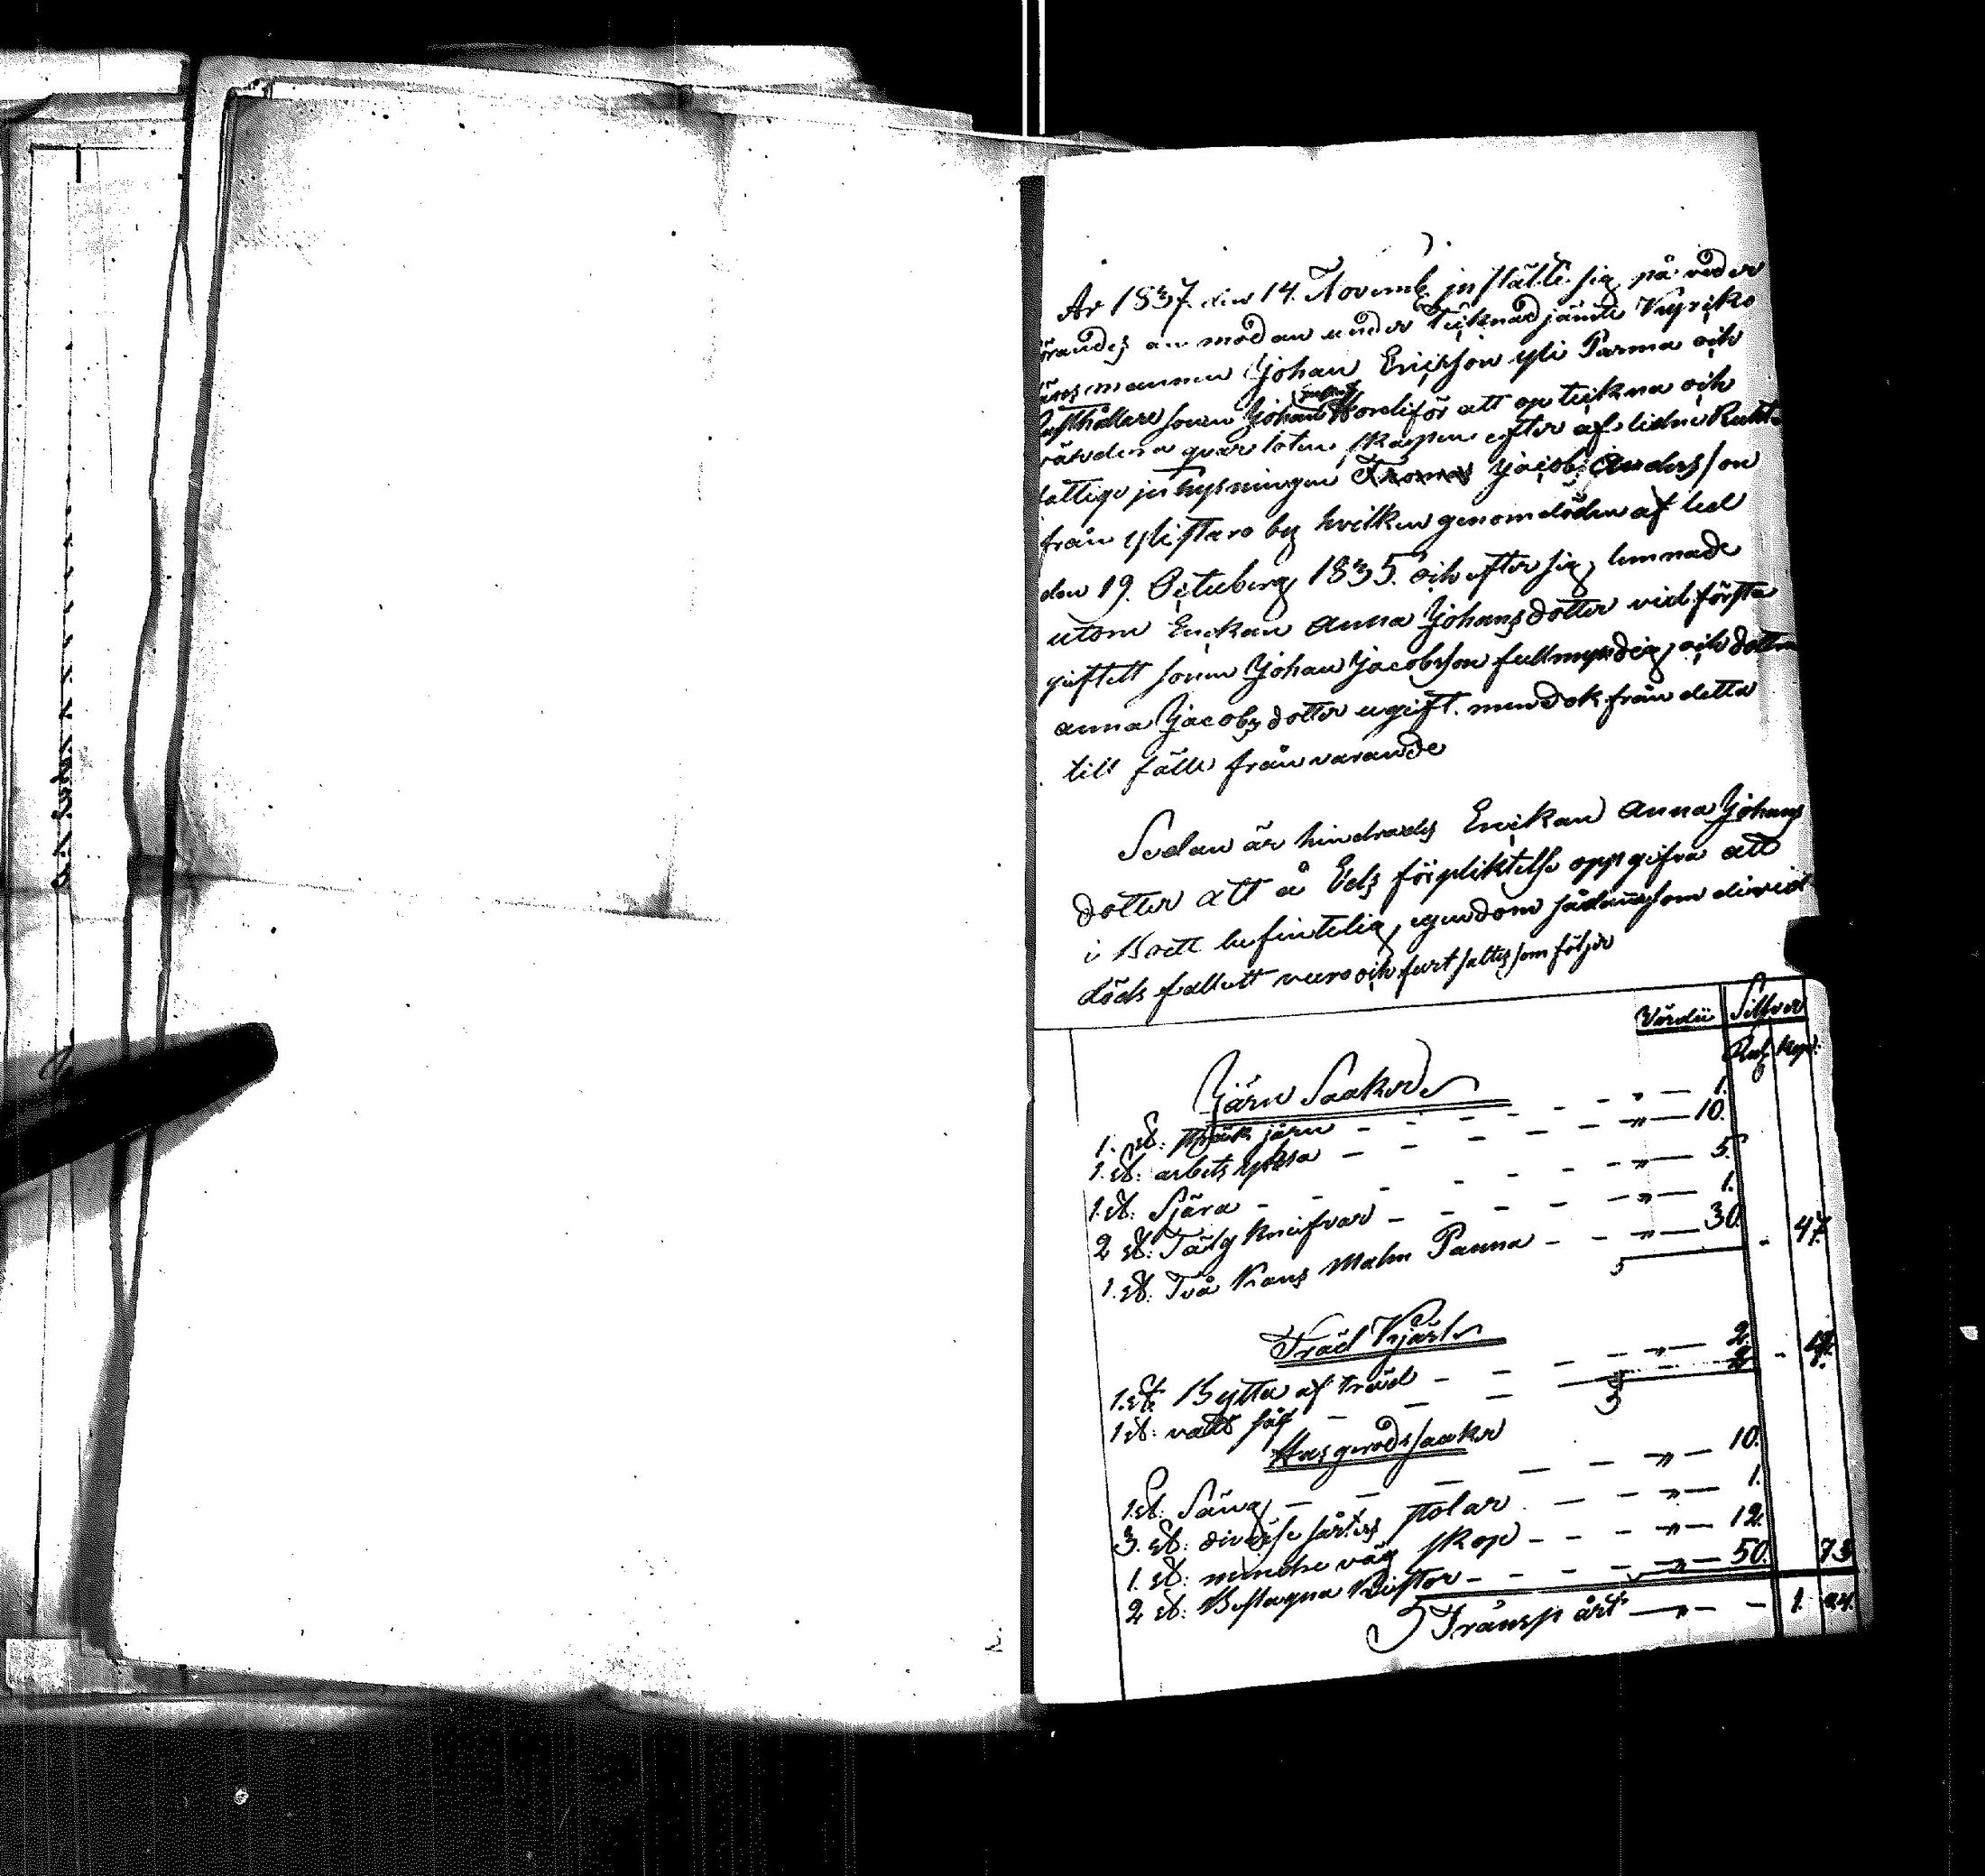 År 1837 den 14. Novemb instälte sig på veder
örandes an modan under Täcknad jämte Kyrcko
manen Johan Ericsson yli Parma och
Rusthållare sonen Johan Hordi för att op teckna och
värdera qvar låtenskapen efter af lidne Rutt
fattige inhysningen Jacob Andersson
från ylistaro by hvilken genom döden af led
den 19. Octuberg 1835. och efter sig lemnade
utom Enckan Anna Johansdotter vid första
giftett sonen Johan Jacobsson fullmyndig och dottren
Anna Jacobsdotter ugift. men dok från detta
till fälle från varande
Sedan är hindrades Enckan Anna Johans
dotter att å Eds förpliktelse oppgifva att
i Boett befintelig egendom sådane som de vid
döds fallett varo och fort sattes som följer
Värdii Silfver
Rub Kop:
Järn Saaker
1. st: järn - - - „ - 1.
1. st: arbets yxsa - - - „ - 10.
1. st: Sjära - - - „ - 5.
2 st: Tälg kneifvar - - - „ - 1.
1. st: Två Kans Malm Panna - - „ - 30. - 47.
Träd Kjärl
1. st: Bytta af träd - - - „ - 2.
1 st: vatt såf - - -
Husgerodssaaker
1. st: Säng - - - „ - 10.
3. st: diverse sårters stolar - - „ - 1.
1. st: mindre väg skop - - - „ - 12.
2 st: Bestagna Kistor - - - „ - 50. 73
Transpårt - „ - - 1. 24.